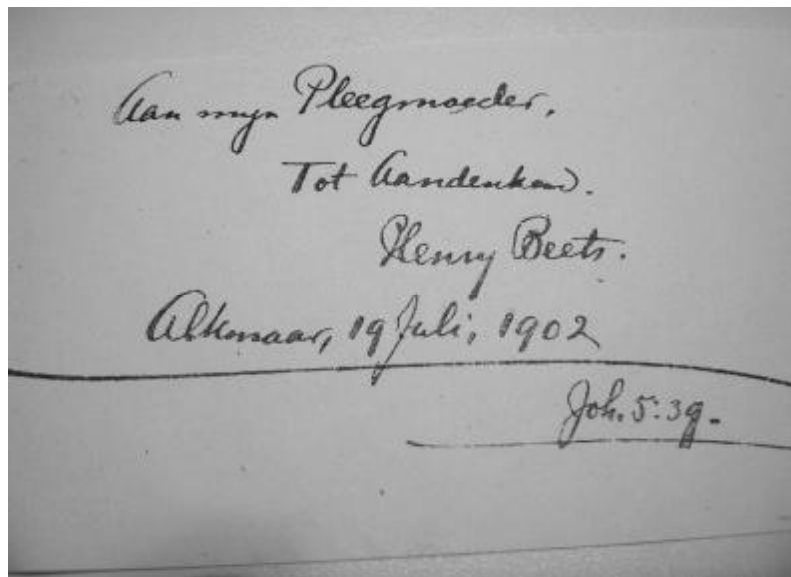 Aan mijn Pleegmoeder,
Tot Aandenken.
Henry Beets.
Alkmaar, 19 Juli, 1902
Joh. 5:39.